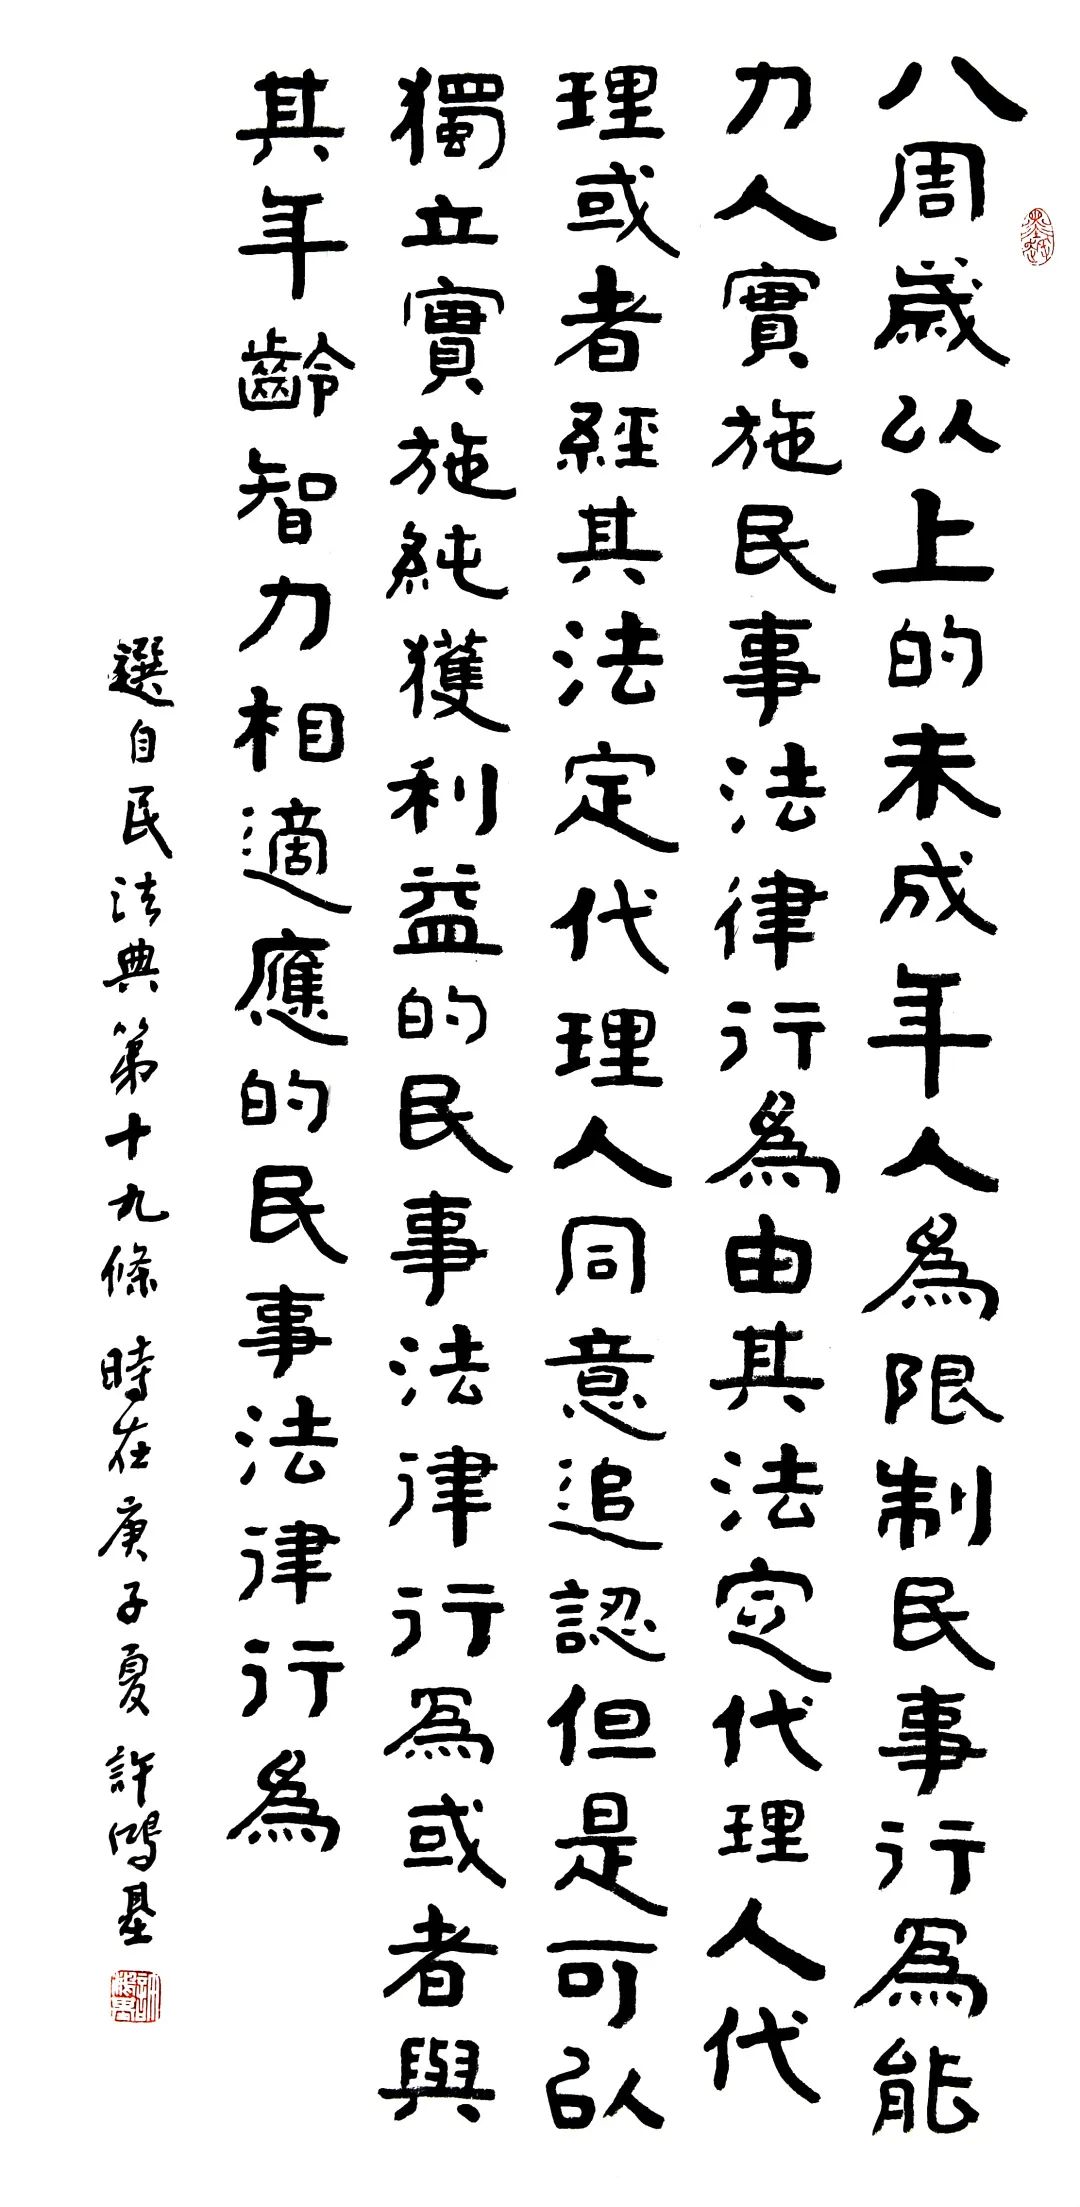 八周歲以上的未成年人為限制民事行為能
力人實施民事法律行為由其法定代理人代
理或者經其法定代理人同意追認但是可以
獨立實施純獲利益的民事法律行為或者與
其年齡智力相適應的民事法律行為
選自民法典第十九條 時在庚子夏 許鴻基